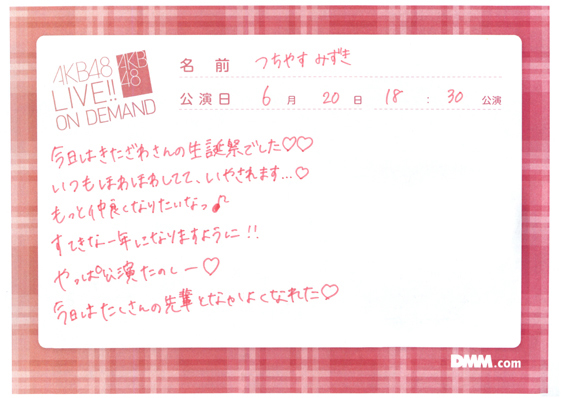 AKB48
LIVE!!
ON DEMAND
AKB
48
名前 つちやす みずき
公演日 6月20日 18:30公演
今日はきたざわさんの生誕祭でした♡♡
いつもほわほわしてて、いやされます…♡
もっと仲良くなりたいなっ♪
すてきな一年になりますように!!
やっぱ公演たのしー♡
今日はたくさんの先輩となかよくなれた♡
DMM.com